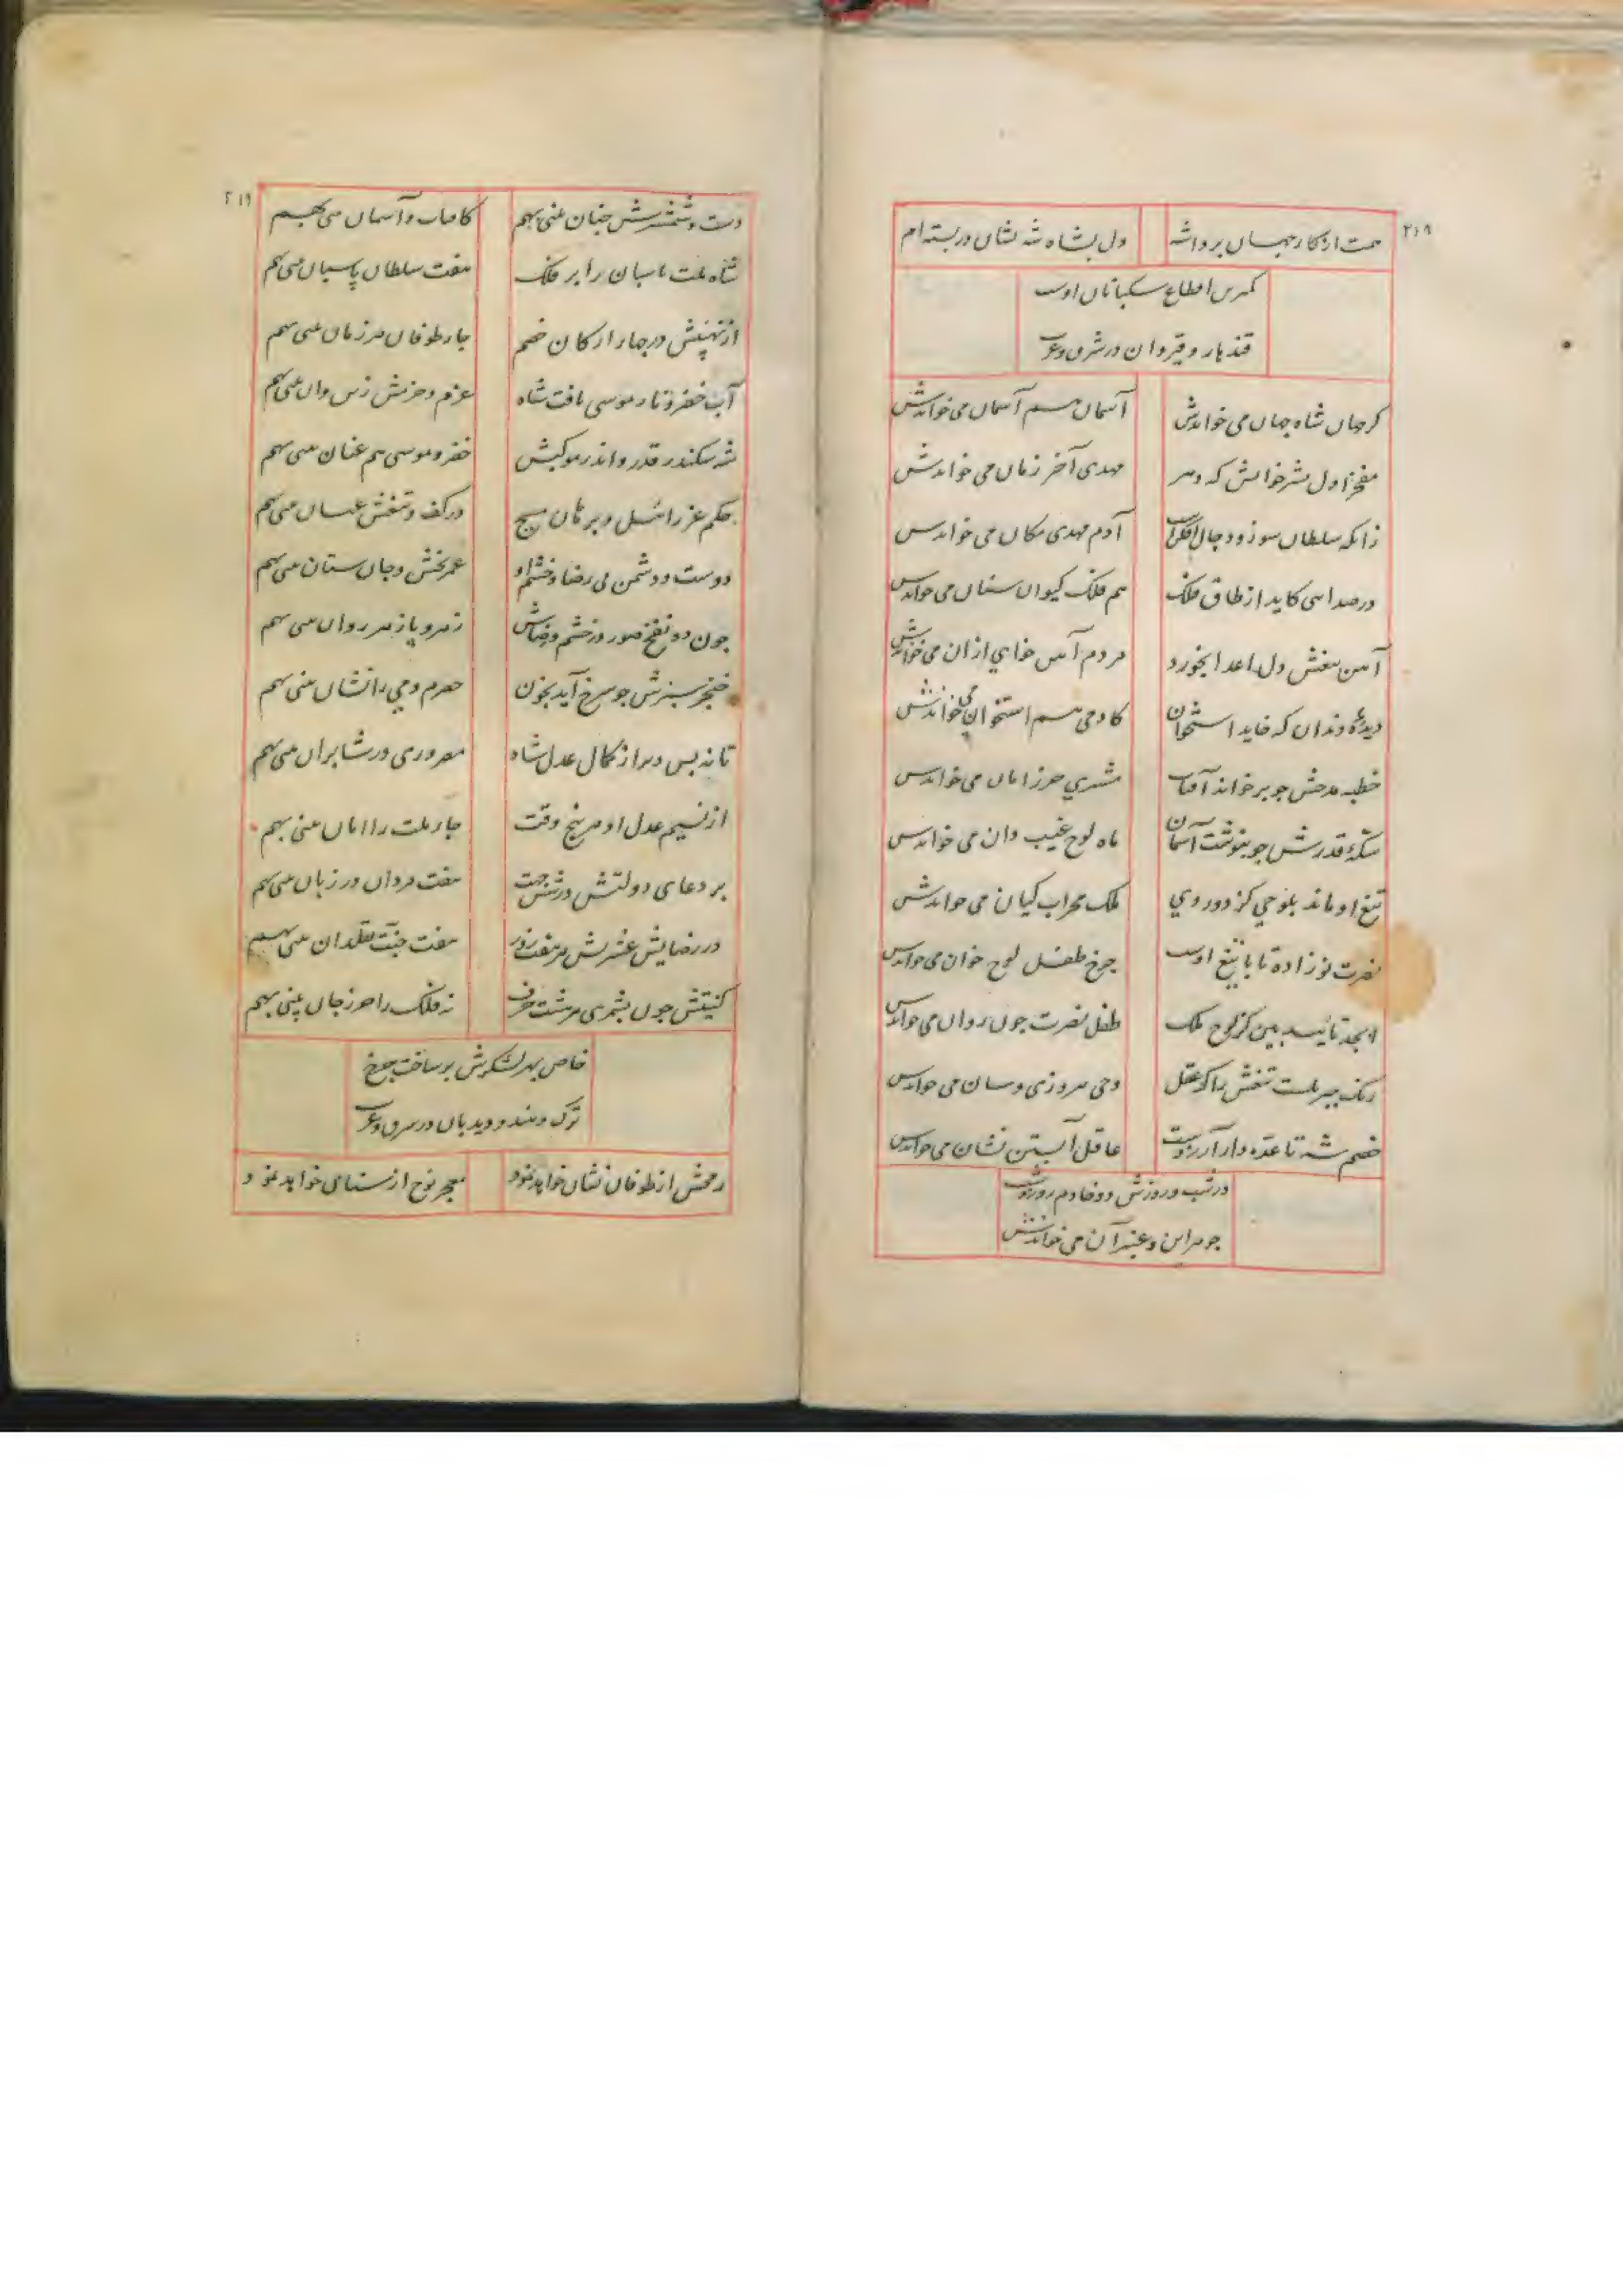 ۲۱۹
همت از کار جهان برداشته دل بشاه شه نشان دربسته‌ام
کمترین اقطاع سکبانان اوست
قندهار و قیروان در شرق و غرب
کر جهان شاه جهان می خواندش آسمان هم آسمان می خواندش
مفخر اول بشر خوانش که دهر مهدی آخر زمان می خواندش
زانکه سلطان سوز و دجال افکن است آدم مهدی مکان می خواندش
در صدایی کاید از طاق فلک هم فلک کیوان ستان می خواندش
آهن تیغش دل اعدا بخورد مردم آهن خای از آن می خواندش
دیده‌ٔ دندان که خاید استخوان کادمی هم استخوان می خواندش
خطبه مدحش چو برخواند آفتاب مشتری حرز امان می خواندش
سکهٔ قدرش چو بنوشت آسمان ماه لوح غیب دان می خواندش
تیغ او ماند بلوحی کز دو روی ملک محراب کیان می خواندش
نصرت نوزاده تا با تیغ اوست چرخ طفل لوح خوان می خواندش
ابجد تایید بین کز لوح ملک طفل نصرت چون روان می خواندش
عقل
خصم شه تا آبستن نشان می خواندش
در شب و روزش دو خادم روز و شب
جوهر این و عنبر آن می خواندش
۲۱۹
دست و شمشیرش چنان بینی بهم کافتاب و آسمان بینی بهم
شاه ملت پاسبان را بر فلک هفت سلطان پاسبان بینی بهم
از نهیبش در چهار ارکان خصم چار طوفان هر زمان بینی بهم
آب خضر و نار موسی یافت شاه عزم و حزمش زین و آن بینی بهم
شه سکندر قدر و اندر موکبش خضر و موسی هم عنان بینی بهم
حکم عزرائیل و برهان مسیح در کف و تیغش عیان بینی بهم
دوست و دشمن بی رضا و خشم او عمر بخش و جان ستان بینی بهم
چون دو نفخ صور در خشم و رضاش زهر و پازهر روان بینی بهم
خنجر سبزش چو سرخ آید بخون حصرم و می را نشان بینی بهم
تا نه بس دیر از کمال عدل شاه
از نسیم عدل او هر پنج وقت چار ملت را امان بینی بهم
بر دعای دولتش در شش جهت هفت مردان در زبان بینی بهم
در رضایش هفت جنت نقدان بینی بهم
کنیتش چون بشمری هر هشت حرف نه فلک را حرز جان بینی بهم
خاص بهر لشکرش برساخت چرخ
ترک و هندو دیدبان در شرق و غرب
رمحش از طوفان نشان خواهد نمود معجز نوح از سنان خواهد نمود